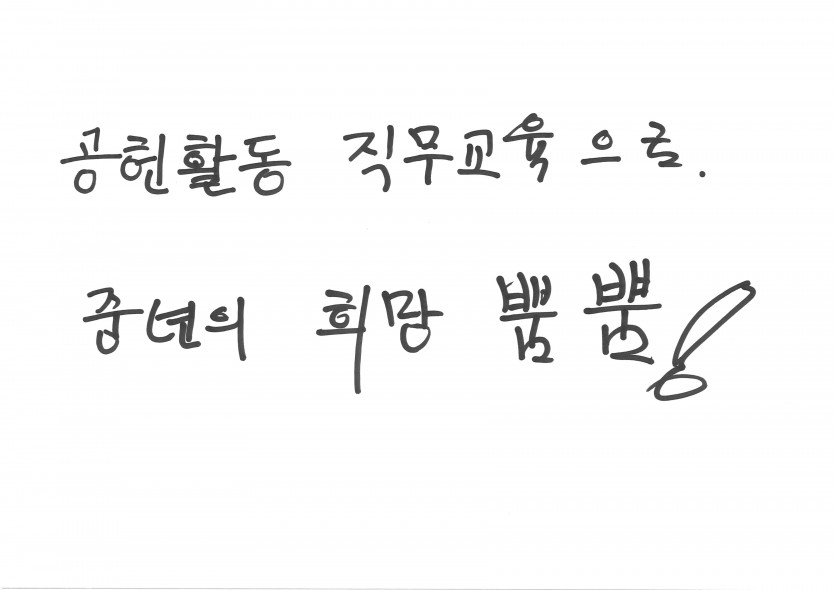 공헌활동 직무교육으로.
중년의 희망 뿜뿜!